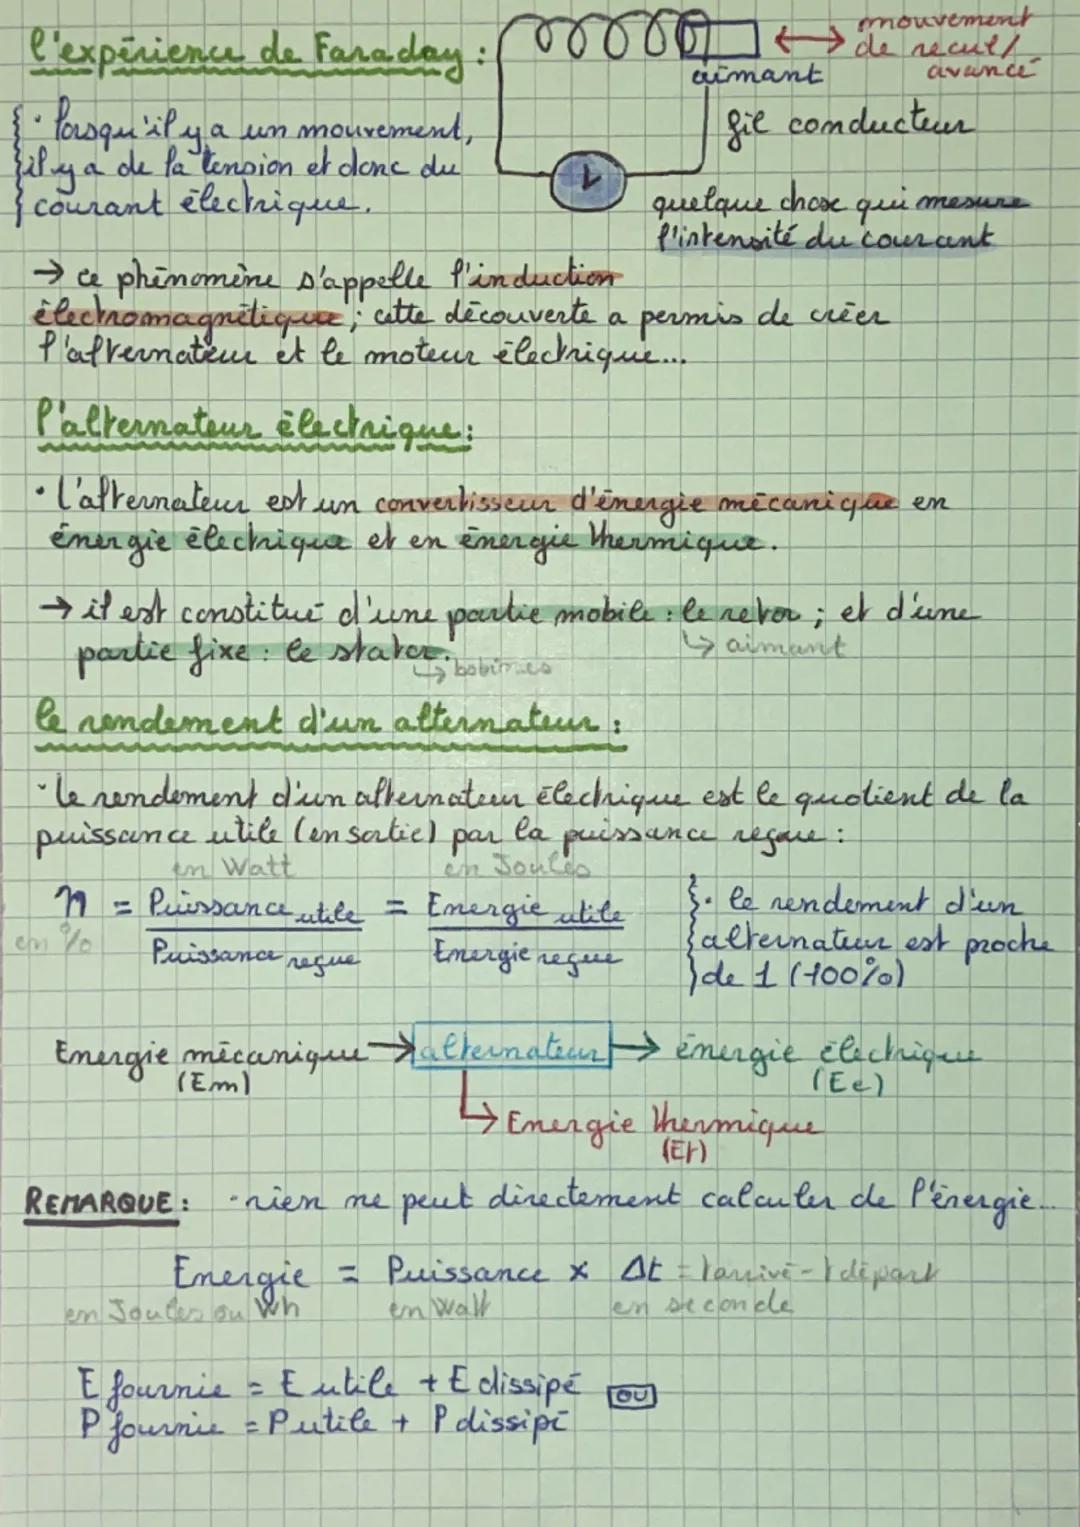 l'expérience de Faraday :
mouvement
de recul/
avancé
aimant
fil conducteur
· lorsqu'il y a un mouvement,
il y a de la tension et donc du
courant électrique.
V
quelque chose qui mesure
l'intensité du courant
→ ce phénomène s'appelle l'induction
électromagnétique ; cette découverte a permis de créer
l'alternateur et le moteur électrique...
l'alternateur électrique :
· l'alternateur est un convertisseur d'énergie mécanique en
énergie électrique et en énergie thermique.
→ il est constitué d'une partie mobile : le rotor ; et d'une
↳ aimant
partie fixe : le stator.
↳ bobines
le rendement d'un alternateur :
· le rendement d'un alternateur électrique est le quotient de la
puissance utile (en sortie) par la puissance reçue :
en Watt en Joules
η = Puissance utile = Energie utile
en %
Puissance reçue Energie reçue
· le rendement d'un
alternateur est proche
de 1 (100%)
Energie mécanique → alternateur → énergie électrique
(Em) (Ee)
↳ Energie thermique
(Et)
REMARQUE : · rien ne peut directement calculer de l'énergie...
Energie = Puissance × Δt = t arrivé - t départ
en Joules ou Wh en Watt en seconde
E fournie = E utile + E dissipé OU
P fournie = P utile + P dissipé